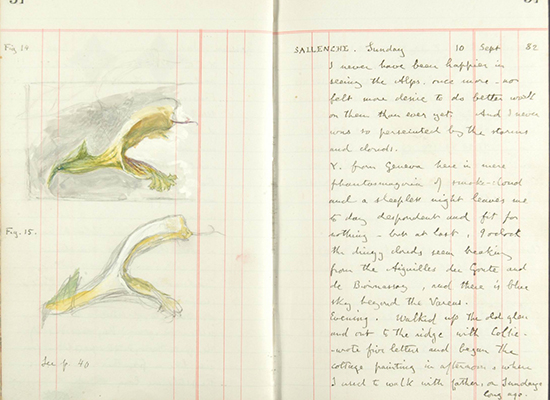 Fig. 14
Fig. 15.
See p. 40
SALLENCHE. Sunday 10 Sept 82
I never have been happier in
seeing the Alps, once more - nor
felt more desire to do better work
on them than ever yet. And I never
was so persecuted by the storms
and clouds.
Y. from Geneva here in mere
phantasmagoria of smoke-cloud
and a sleepless night leaves me
to day despondent and fit for
nothing - but at last, 9 oclock
the dingy clouds seem breaking
from the Aiguilles du Goute and
de Bionnassay, and there is blue
sky beyond the Varens.
Evening. Walked up the old glen
and out to the ridge with Collie -
- wrote five letters and began the
cottage painting in afternoon, where
I used to walk with father, on Sundays
long ago.